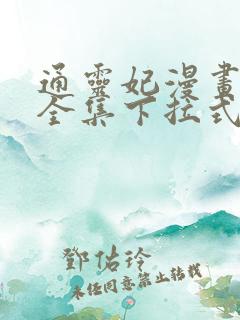 通靈妃漫畫
全集下拉式
鄧佑玲
未經同意禁止轉載